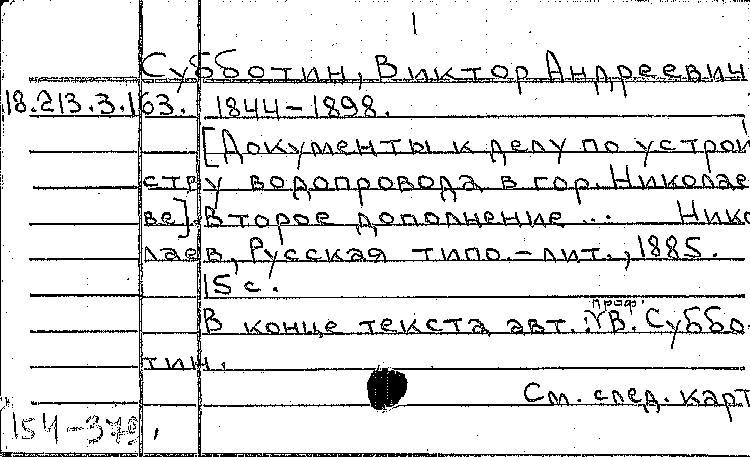 1
Субботин, Виктор Андреевич
18.213.3.163. 1844-1898.
[Документы к делу по устрой
ству водопровода в гор. Николае
ве]. Второе дополнение ... Нико
лаев, Русская типо.-лит., 1885.
15 с.
проф.
В конце текста авт.: В. Суббо
тин.
См. след. карт
154-379,